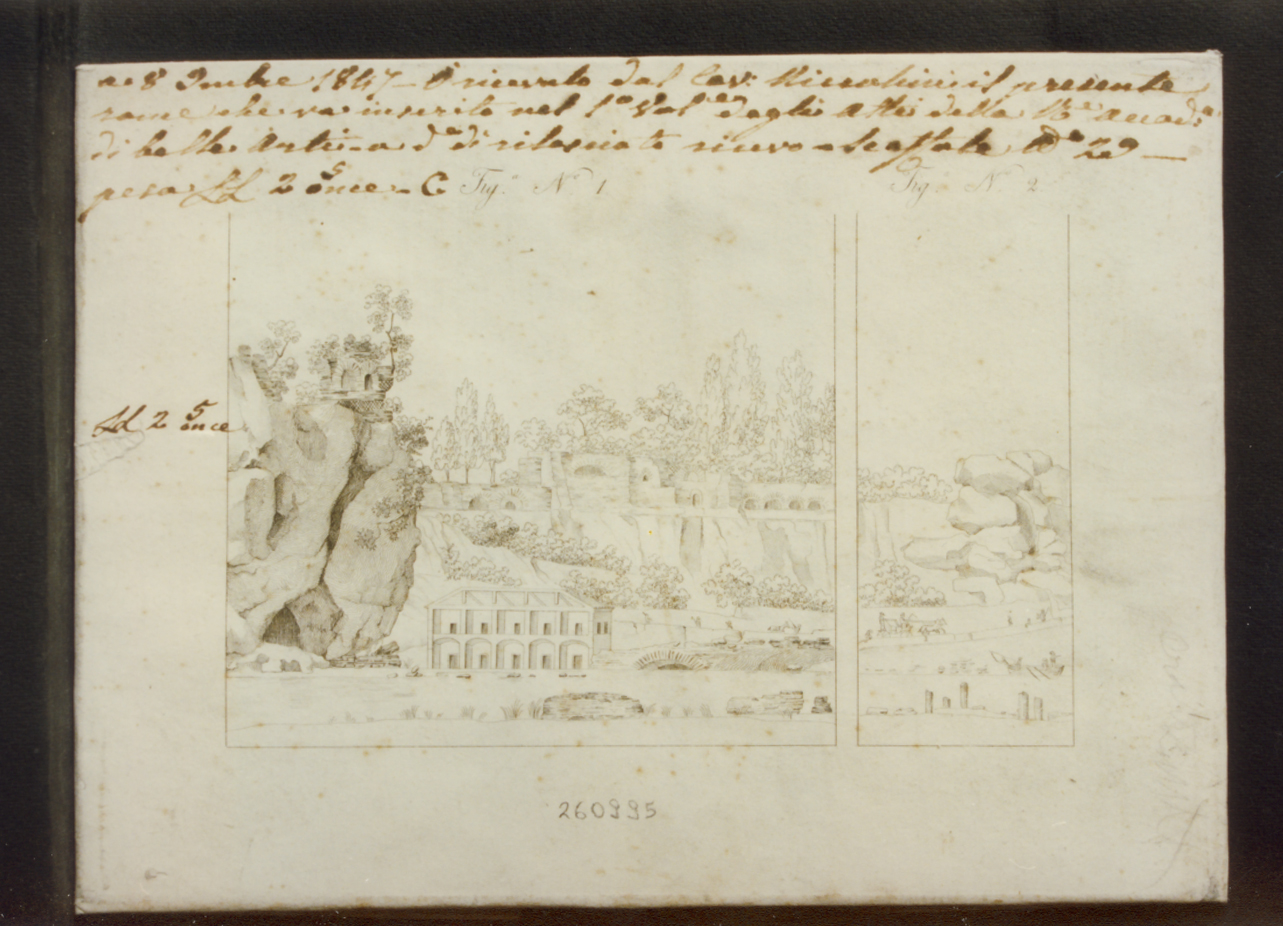 a 8 9mbre 1847 – O ricevuto dal Cav: Niccolini il presente
rame che va inserito nel 1º Vol.e degli Atti della R.e Accad.a
di belle Arti – a d.º di rilasciato ricevo – Scaffale
pesa LL 2 5 once – C
Fig.a Nº 1
Fig.a Nº 2
LL 2 5 once
260995